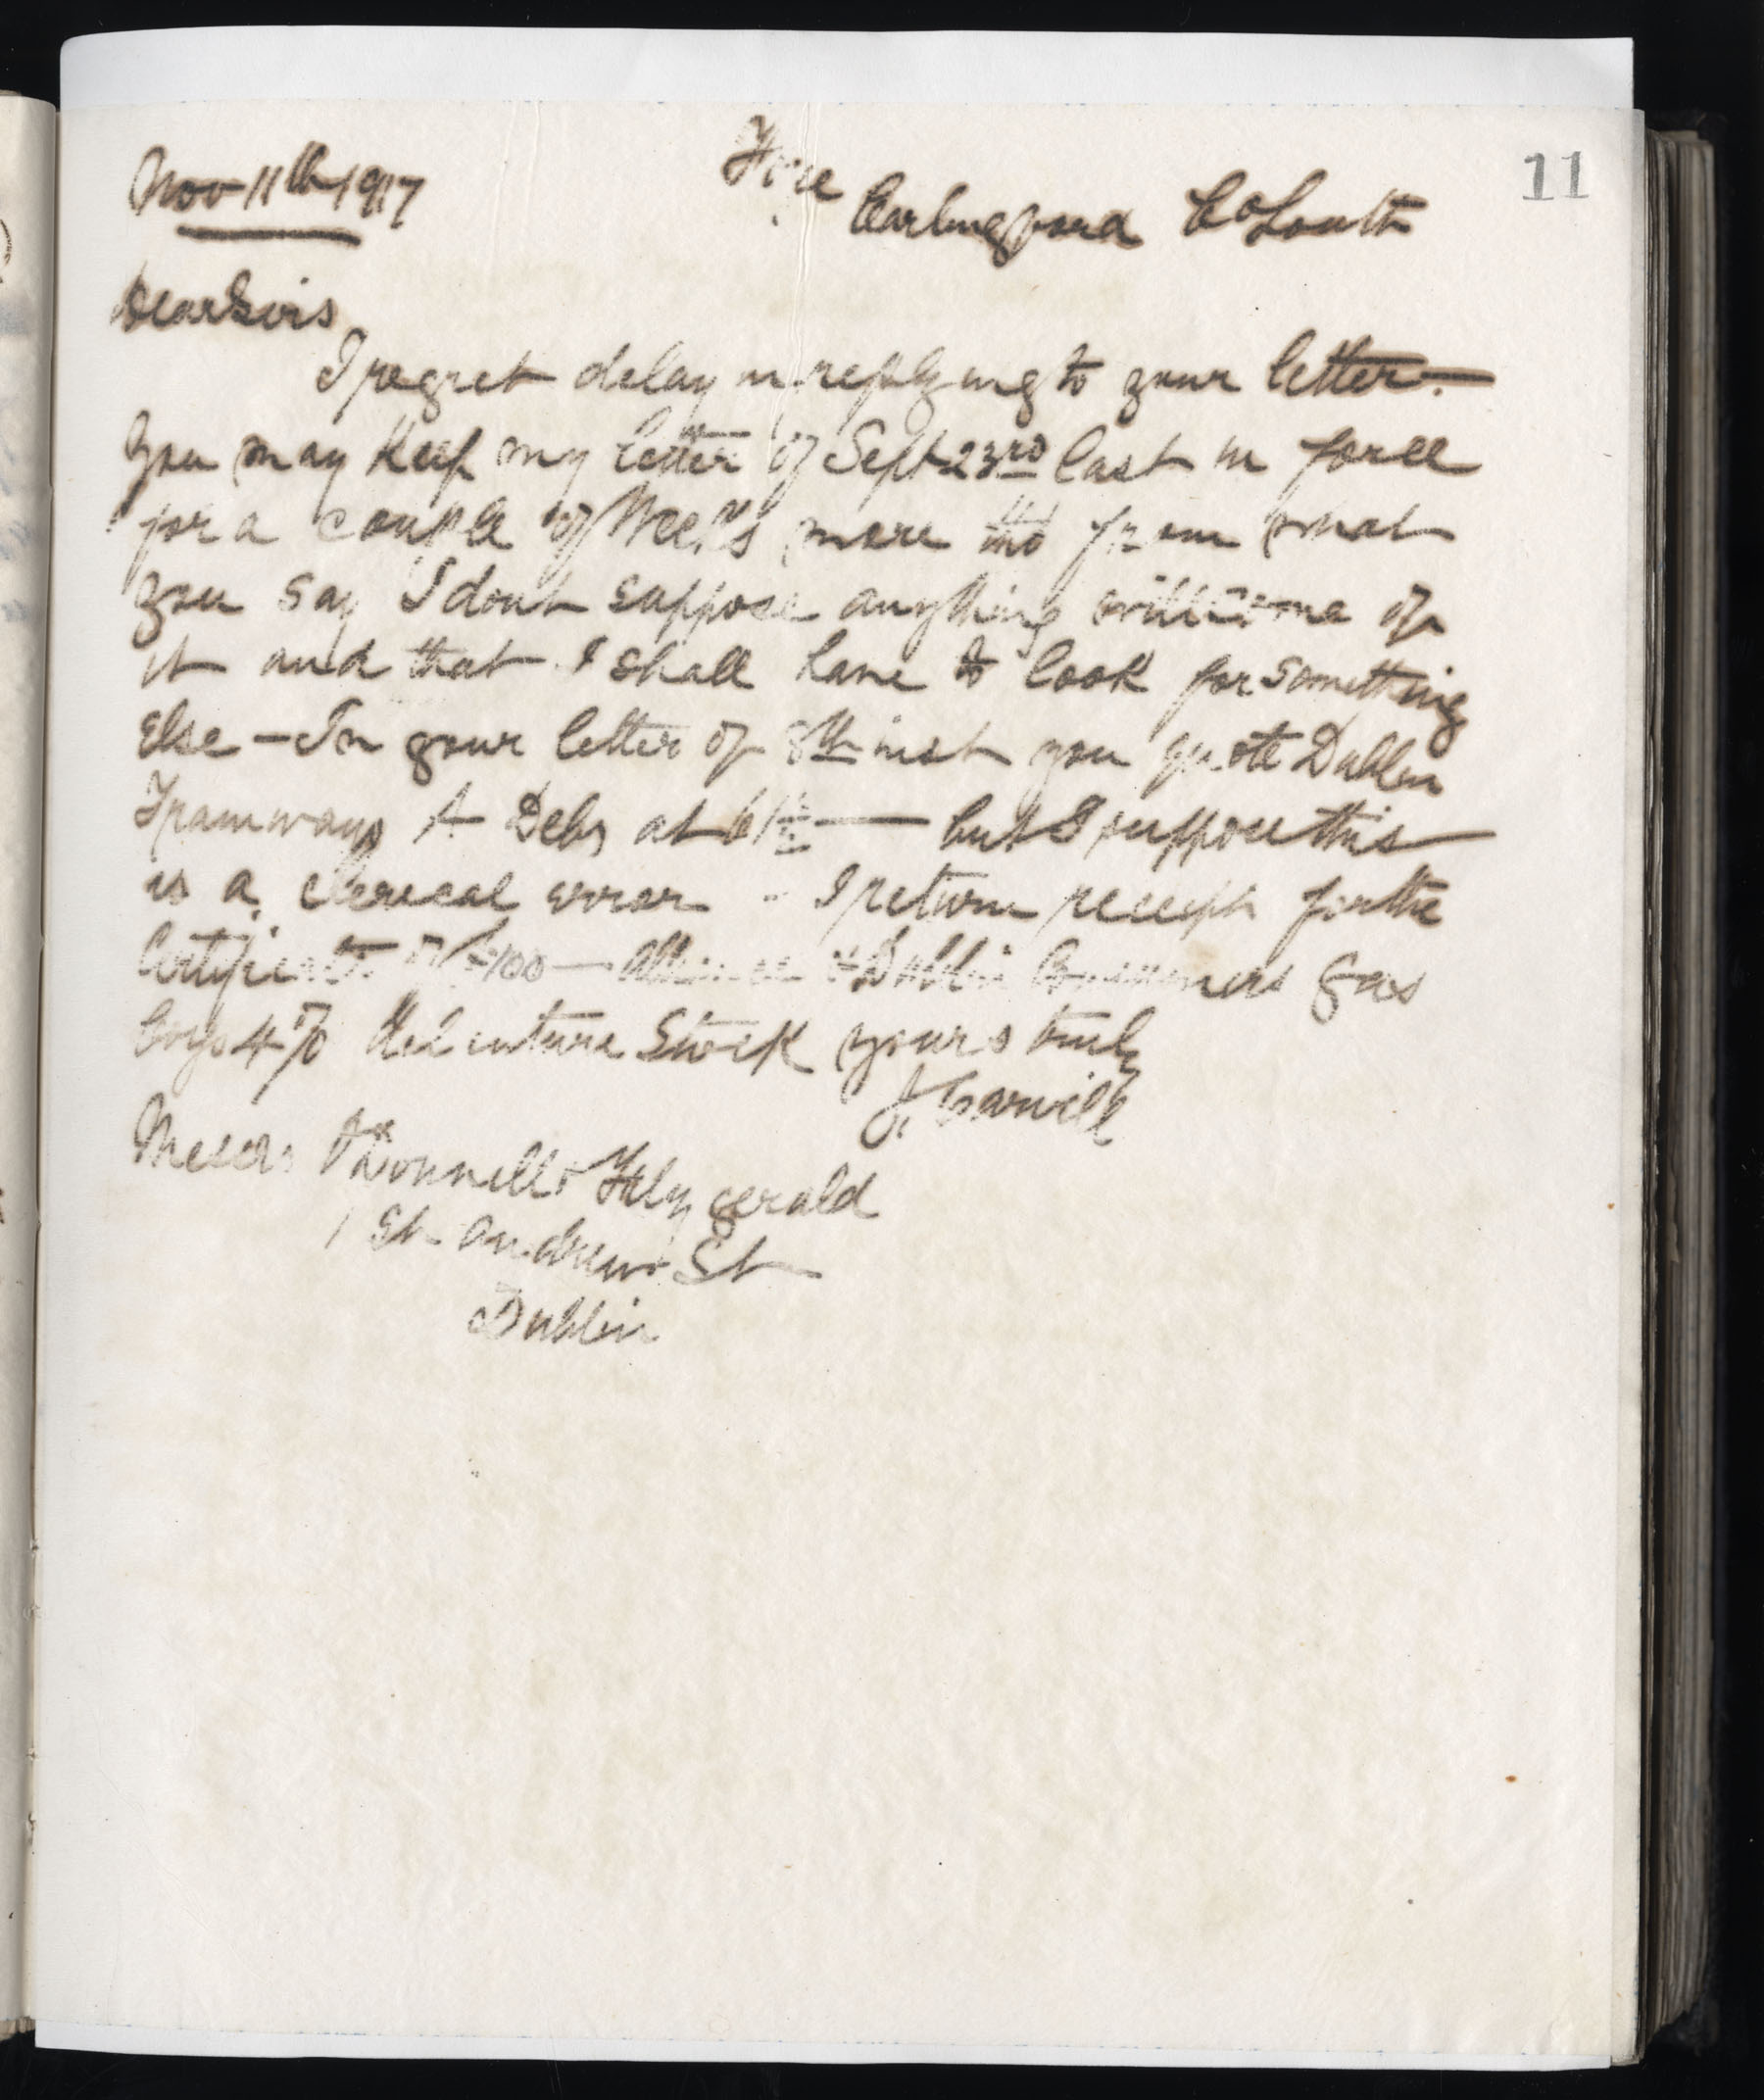 11
Nov 11th 1917
Carlingford Co Louth
Dear Sirs
I regret delay in replying to your letter —
you may keep my letter of Sept 23rd last in force
for a couple of Weeks more tho from what
you say I dont suppose anything will come of
it and that I shall have to look for something
Else — In your letter of 8th inst you quote Dublin
Tramways A Debs at 61½ — but I suppose this
is a clerical error - I return receipt for the
Certificate of £100 — Alliance & Dublin Consumers Gas
Coys 4% debenture Stock yours truly
J. Carvill
Messrs O'Donnell & Fitzgerald
1 St Andrew St
Dublin